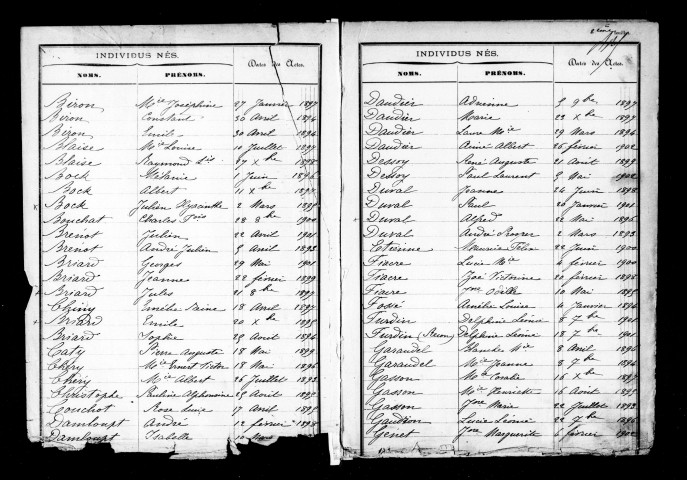 INDIVIDUS NÉS.
NOMS. PRÉNOMS. Dates des Actes.
Biron Mie Joséphine 27 Janvier 1897
Biron Constant 30 Avril 1894
Biron Emile 30 Avril 1894
Blaise Mie Louise 10 Juillet 1897
Blaise Raymond Ls 17 Xbre 1898
Bock Mélanie 1 Juin 1896
Bock Albert 11 Xbre 1897
Bock Julien Hyacinthe 2 Mars 1895
Bouchat Charles Fois 28 8bre 1900
Brenot Julien 22 Avril 1901
Brenot André Julien 5 Avril 1893
Briard Georges 29 Mai 1901
Briard Jeanne 22 février 1899
Briard Jules 21 8bre 1897
Chény Emélie 18 Avril 1897
Briard Emile 20 Xbre 1895
Briard Sophie 29 Août 1894
Caty Pierre Auguste 18 Mai 1899
Chéry Mie Ernest Victor 18 Mai 1896
Chéry Mie Albert 26 Juillet 1893
Christophe Pauline Alphonsine 29 Août 1897
Couchot Rose Lucie 17 Avril 1895
Damloupt André 12 février 1898
Damloupt Isabelle 10 Mars
INDIVIDUS NÉS.
NOMS. PRÉNOMS. Dates des Actes.
Daudier Adrienne 5 9bre 1897
Daudier Marie 23 Xbre 1897
Daudier Laure Mie 29 Mars 1894
Daudier Aimé Albert 26 février 1902
Dessoy René Auguste 21 Avril 1899
Dessoy Paul Laurent 9 Mai 1902
Duval Jeanne 24 Juin 1898
Duval Paul 20 Janvier 1901
Duval Alfred 22 Mai 1896
Duval André 2 Mars 1893
Etienne Maurice Félix 22 Juin 1900
Fiacre Lucie Mie 4 février 1900
Fiacre José Victorine 20 février 1898
Fiacre Jne Odille 10 Mai 1895
Fossé Amélie Louise 4 Janvier 1894
Furdin Delphine Léonie 8 7bre 1901
Furdin Delphine Léonie 18 7bre 1901
Garaudel Blanche Mie 8 Avril 1894
Garaudel Mie Jeanne 8 7bre 1894
Gasson Mie Coralie 16 Xbre 1897
Gasson Mie Henriette 16 Août 1895
Gasson Jne Marie 22 Juillet 1893
Gaudron Lucie Léonie 22 7bre 1896
Genet Jne Marguerite 6 février 1900